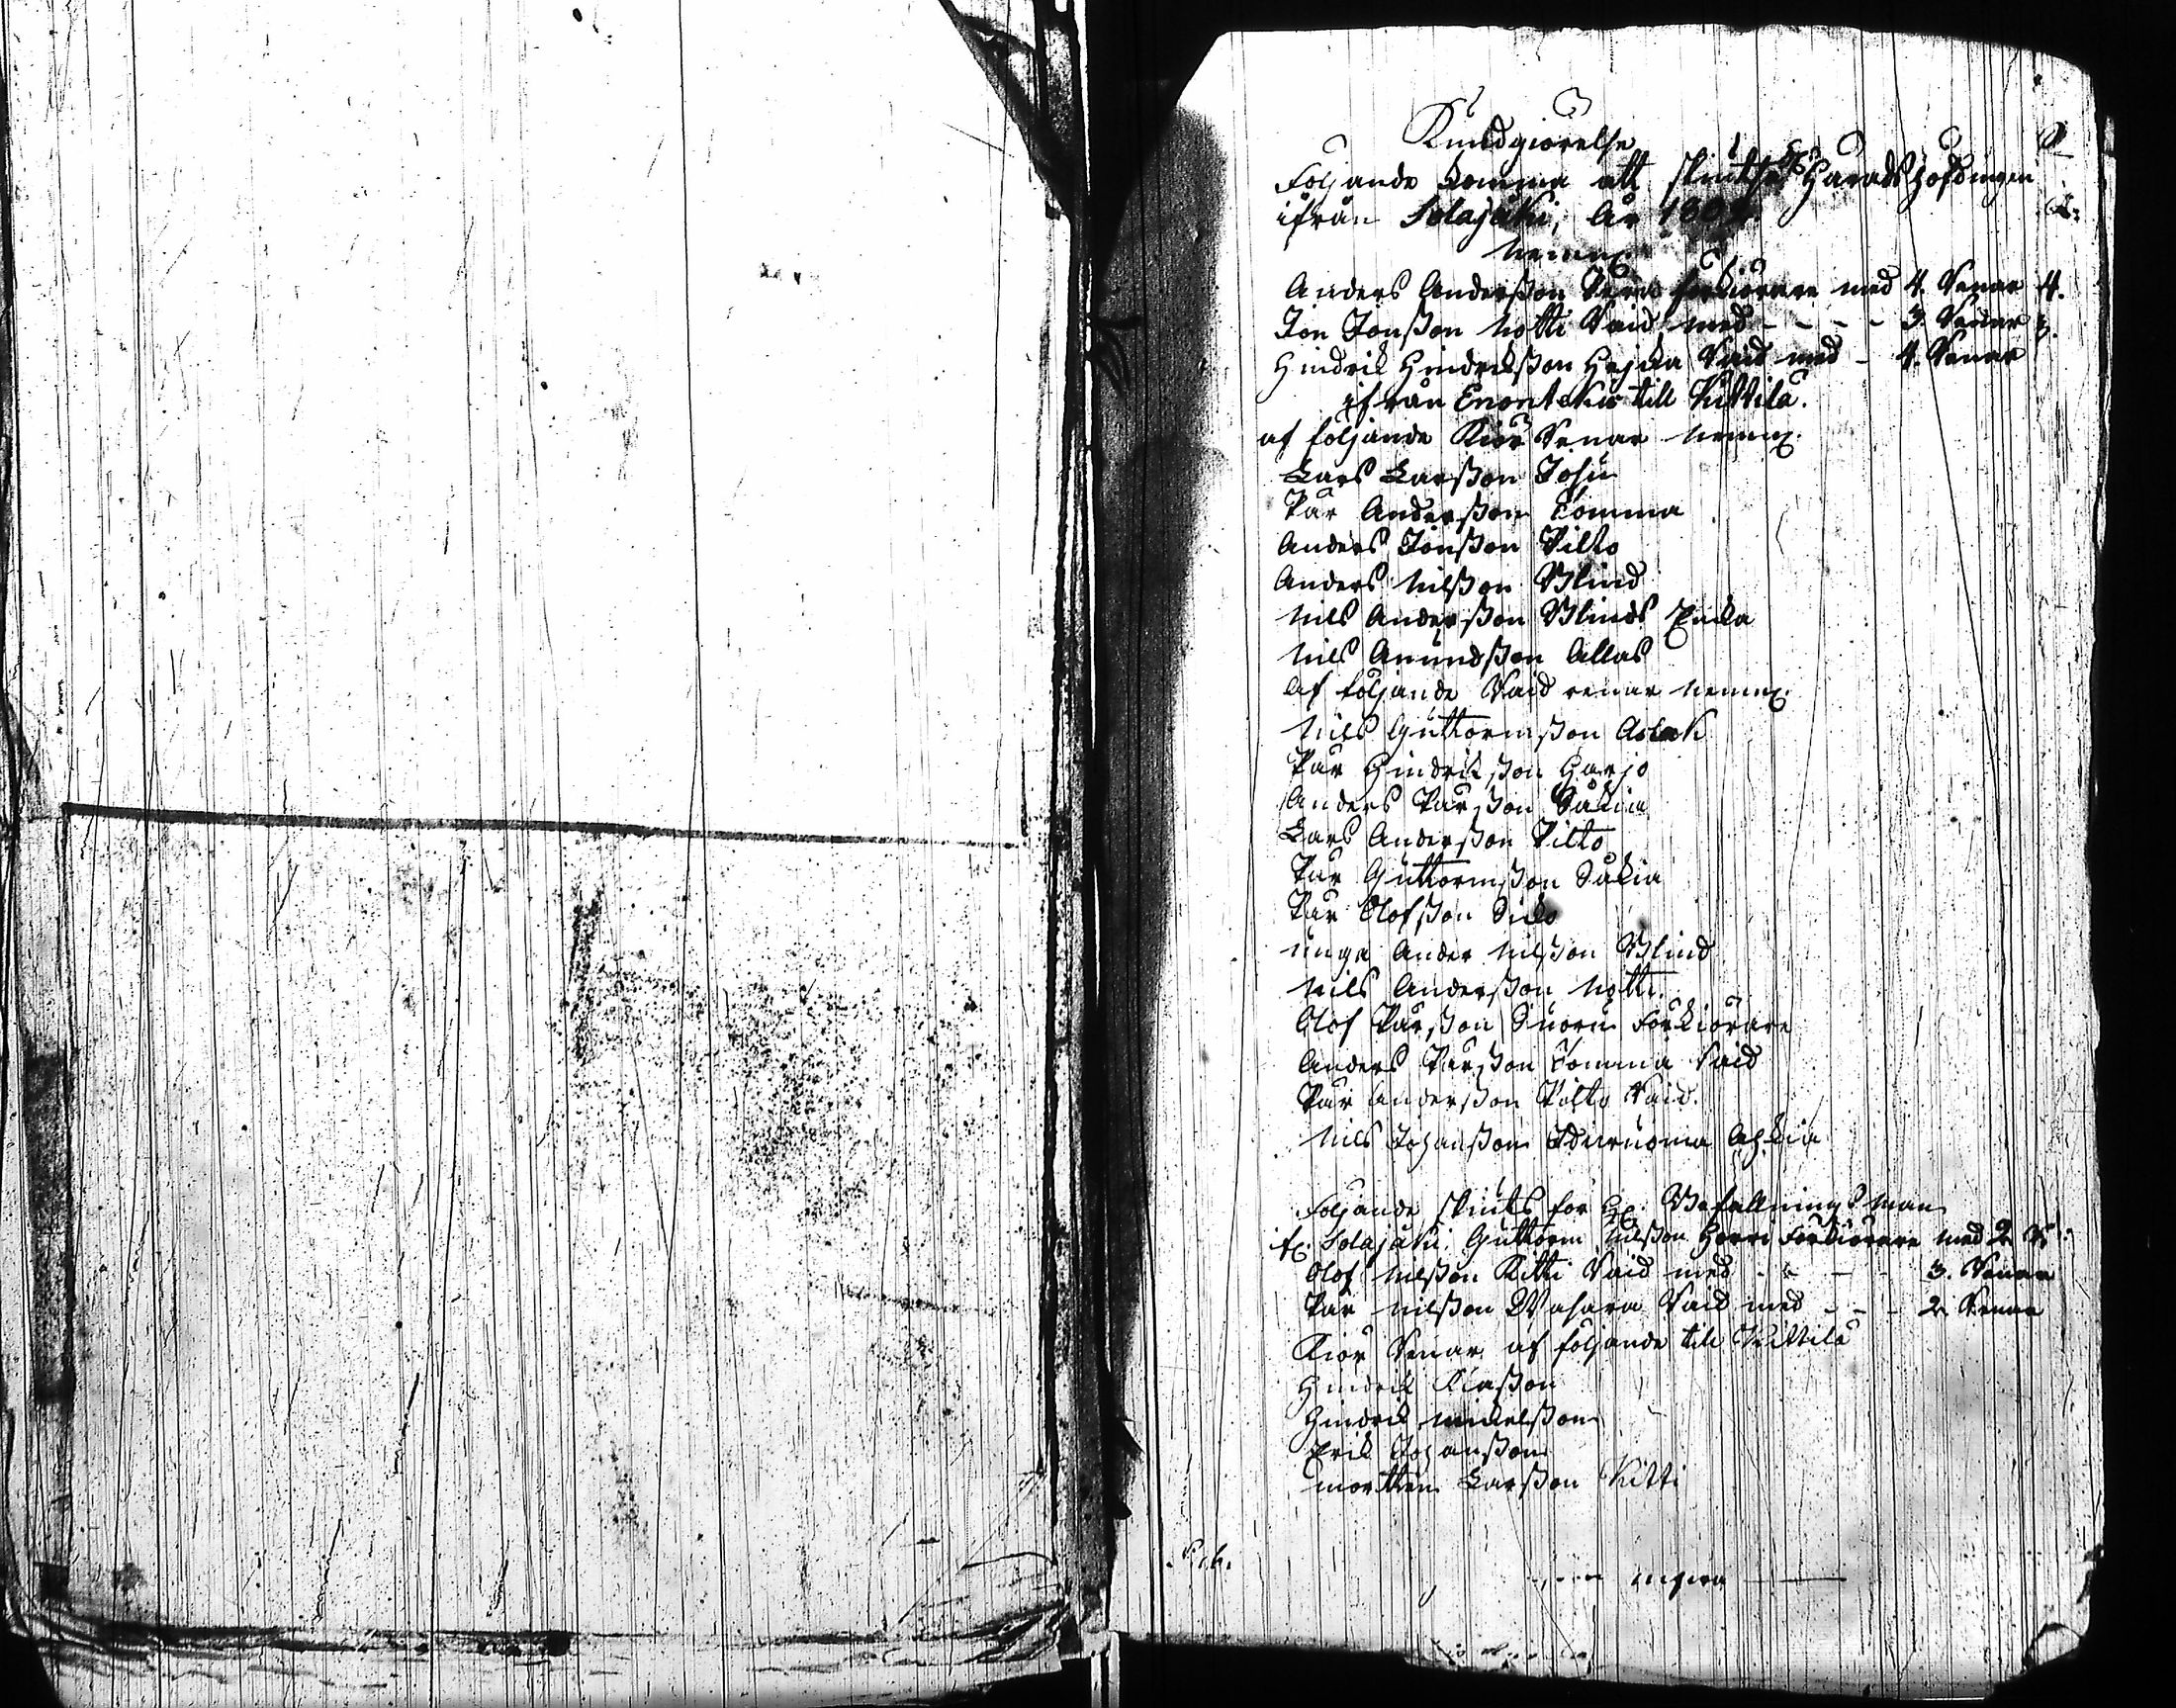 Kundgiörelse
Följande komma att skiutsa Häradshöfdingen
ifrån Solajäki, År 180
nemnl.
Anders Andersson förkiörare med 4. Renar 4.
Jon Jonsson Notti Raid med - - - - 3. Renar 3.
Hindrik Hindriksson Raid med - 4. Renar
ifrån Enontekis till Kittilä.
af följande Kiör Renar nemnl.
Lars Larsson Josu
Pär Andersson Tomma
Anders Jonsson Pilto
Anders Nilsson Blind
Nils Andersson Blinds Enka
Nils Amundsson Allas
Af följande Raid renar nemnl.
Nils Guttormsson Aslak
Pär Hindriksson Harjo
Anders Pärsson Säkia
Lars Andersson Pilto
Pär Guttormsson Säkia
Pär Olofsson Siko
unge Ander Nilsson Blind
Nils Andersson Notti
Olof Pärsson Suoru Förkiörare
Anders Pärsson Tomma Raid
Pär Andersson Pilto Raid.
Nils Johansson
Följande skiuts för Hr. Befallningsman
fr. Solajäki. Guttorm Nilsson Förkiörare med 2 R:
Olof Nilsson Kitti Raid med - - - 3. Renar
Pär Nilsson Wasara Raid med - - - 2 Renar
Kiör Renar af följande till Kittilä
Hindrik Klasson
Hindrik Mickelsson
Erik Johansson
Morthen Larsson Kitti